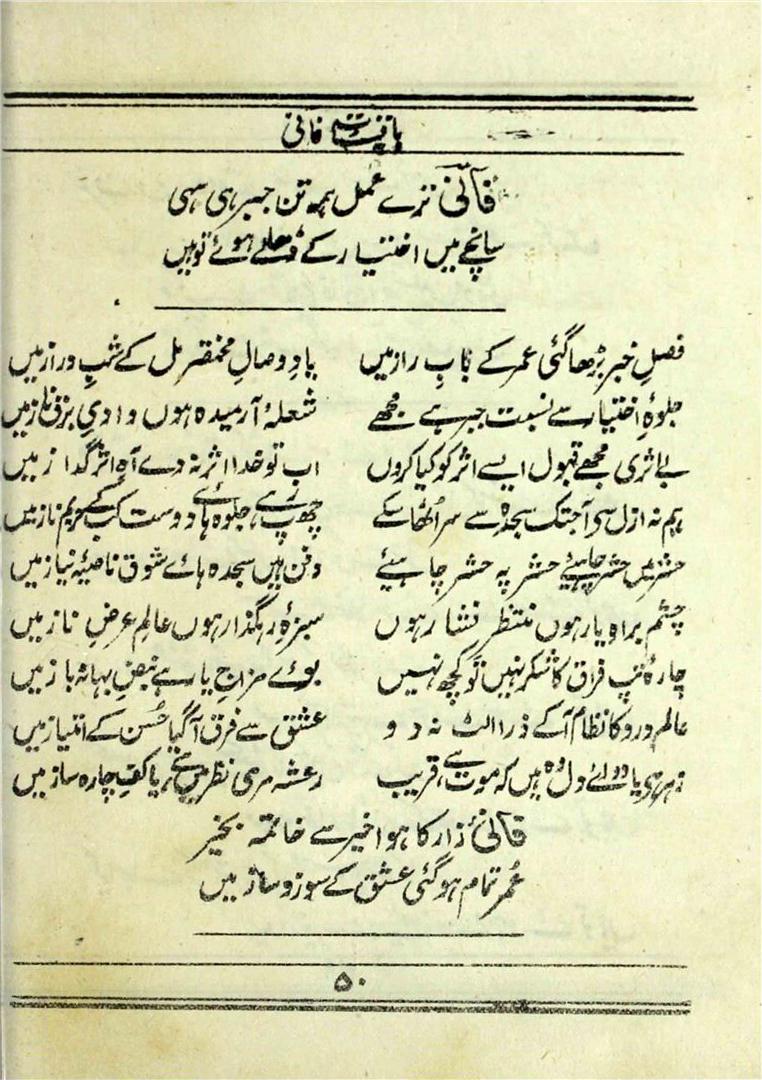 باقیات فانی
فانی ترے عمل ہمہ تن جبر ہی سہی
سانچے میں اختیار کے ڈھلے ہوئے تو ہیں
فصلِ خبر بڑھا گئی عمر کے بابِ راز میں یادِ وصالِ مختصر مل کے شبِ دراز میں
جلوۂ اختیار سے نسبت جبر ہے مجھے شعلۂ آرمیدہ ہوں وادیِ برق ناز میں
بے اثری مجھے قبول ایسے اثر کو کیا کروں اب تو خدا اثر نہ دے آہ اثر گداز میں
ہم نہ ازل سے آجتک سجدہ سے سر اٹھا سکے چھپ رہے جلوہ ہائے دوست کب کے حریم ناز میں
حشر میں حشر چاہیئے حشر پہ حشر چاہیئے دفن ہیں سجدہ ہائے شوق ناصیۂ نیاز میں
چشم براہِ یار ہوں منتظر فشار ہوں سبزۂ رہگذار ہوں عالمِ عرضِ ناز میں
چارۂ تپِ فراق کا شکر نہیں تو کچھ نہیں بوئے مزاجِ یار ہے نبضِ بہانہ باز میں
عالم درد کا نظام آکے ذرا الٹ نہ دو عشق سے فرق آگیا حُسن کے امتیاز میں
زہر ہی یا دوائے دل وہ ہیں کہ موت ہے قریب رعشہ مری نظر میں ہے یا کفِ چارہ ساز میں
فانیٔ زار کا ہوا خیر سے خاتمہ بخیر
عُمر تمام ہوگئی عشق کے سوز و ساز میں
۵۰